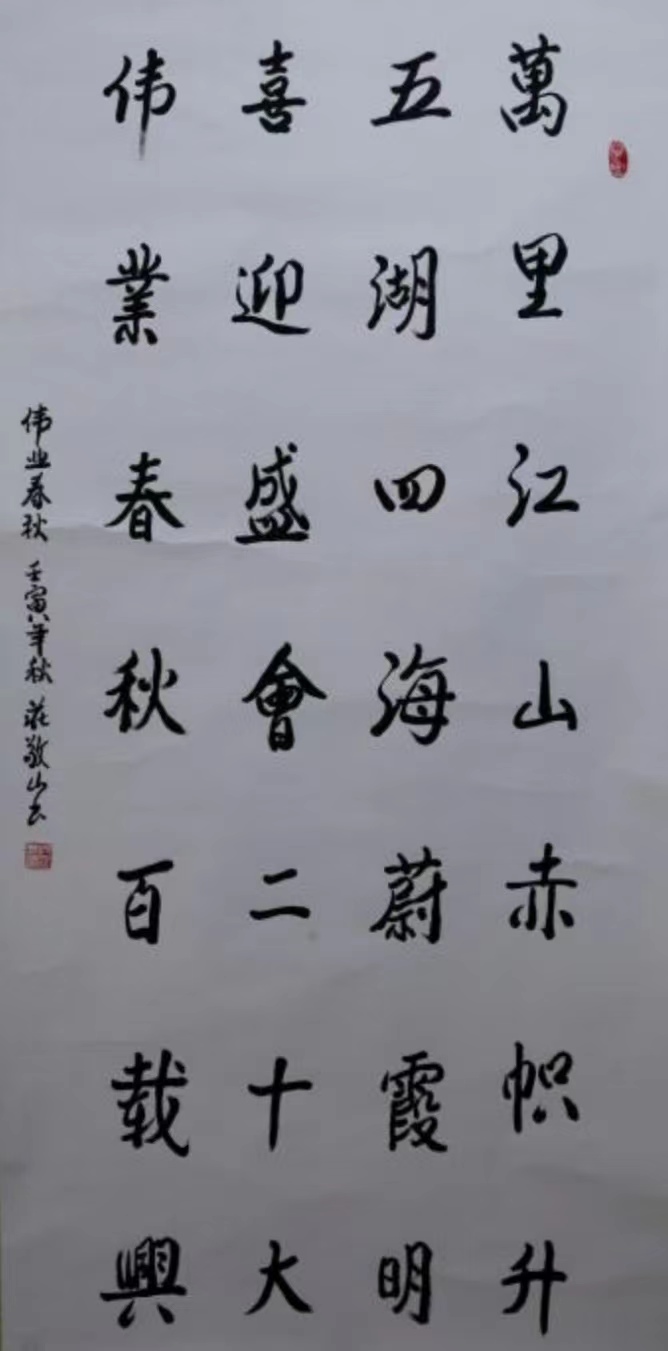 萬里江山赤帜升
五湖四海蔚霞明
喜迎盛會二十大
伟業春秋百载興
伟业春秋 壬寅年秋 莊敬山书